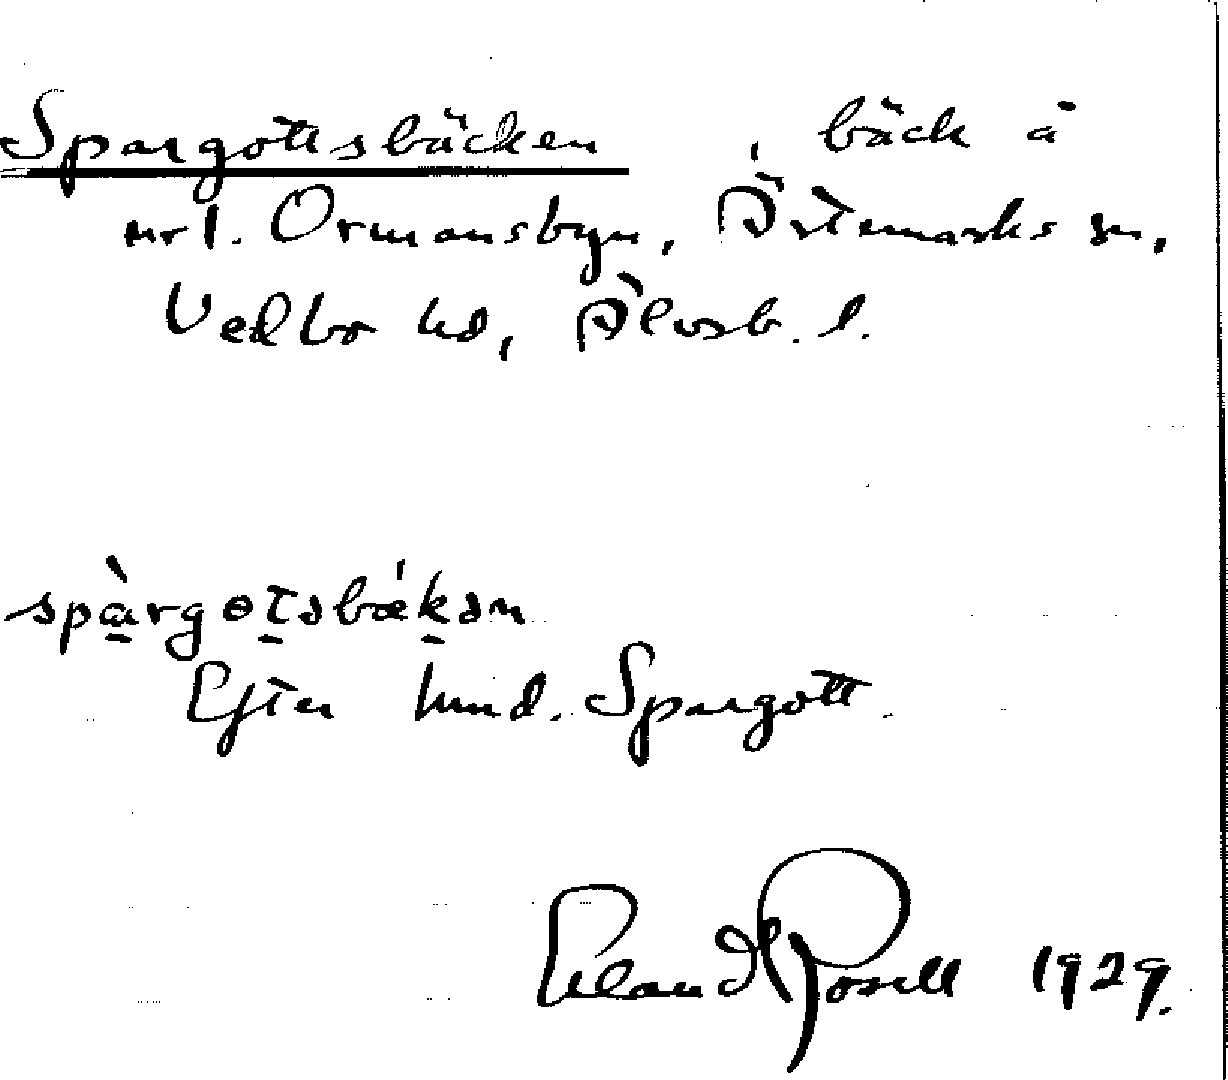 Spargottsbäcken, bäck å
utl. Ormansbyn, Ärtemarks sn,
Vedbo hd, Älvsb. l.
spàrgotsbækən
Efter hmd. Spargott.
Erland Rosell 1929.